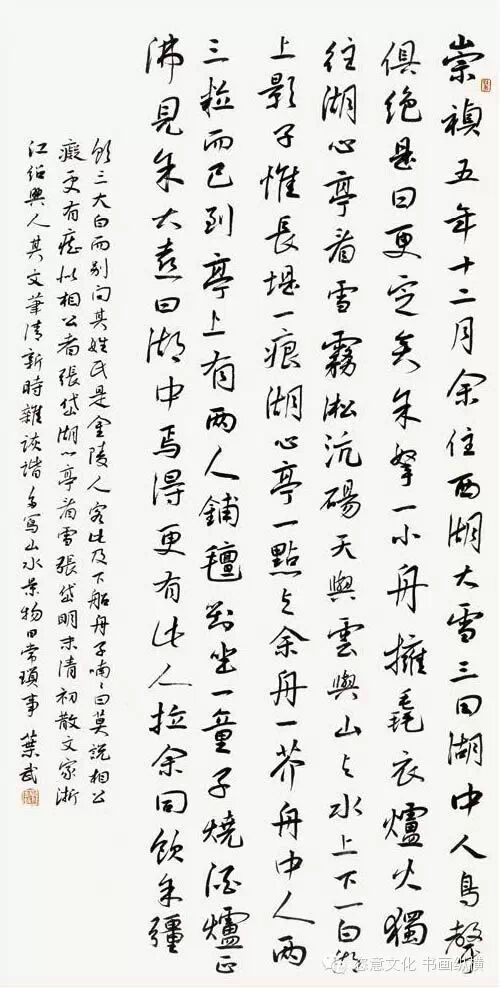 崇禎五年十二月余住西湖大雪三日湖中人鳥聲
俱绝是日更定矣余拏一小舟擁毳衣爐火獨
往湖心亭看雪霧淞沆碭天與雲與山与水上下一白湖
上影子惟長堤一痕湖心亭一點与余舟一芥舟中人两
三粒而已到亭上有两人鋪氈對坐一童子燒酒爐正
沸見余大喜曰湖中焉得更有此人拉余同飲余彊
飲三大白而别问其姓氏是金陵人客此及下船舟子喃々曰莫説相公
癡更有癡似相公者張岱湖心亭看雪張岱明末清初散文家浙
江绍興人其文筆清新時雜詼諧多寫山水景物日常瑣事 葉武
恣意文化 书画纵横